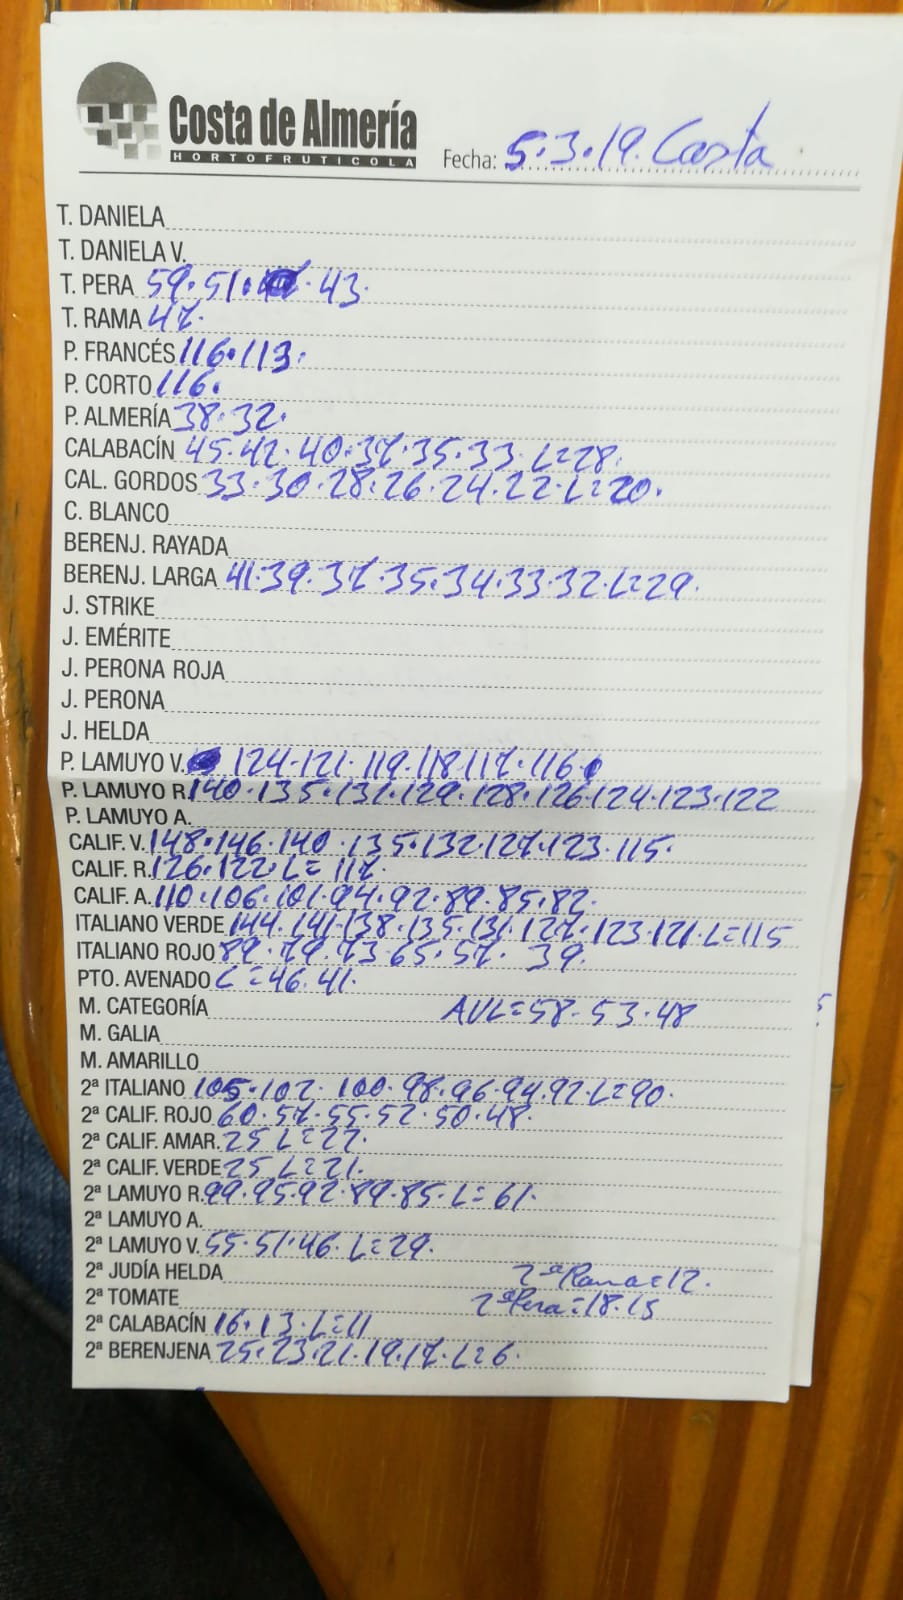 Costa de Almería
HORTOFRUTICOLA
Fecha: 5.3.19. Costa
T. DANIELA
T. DANIELA V.
T. PERA 59.51. 43.
T. RAMA 47.
P. FRANCÉS 116.113.
P. CORTO 116.
P. ALMERÍA 38.32.
CALABACÍN 45.42.40.37.35.33.L=28.
CAL. GORDOS 33.30.28.26.24.22.L=20.
C. BLANCO
BERENJ. RAYADA
BERENJ. LARGA 41.39.37.35.34.33.32.L=29.
J. STRIKE
J. EMÉRITE
J. PERONA ROJA
J. PERONA
J. HELDA
P. LAMUYO V. 124.121.119.118.117.116.
P. LAMUYO R. 140.135.131.129.128.126.124.123.122
P. LAMUYO A.
CALIF. V. 148.146.140.135.132.127.123.115.
CALIF. R. 126.122.L=117.
CALIF. A. 110.106.101.94.92.89.85.82.
ITALIANO VERDE 144.141.138.135.131.127.123.121.L=115
ITALIANO ROJO 89.79.73.65.57. 39.
PTO. AVENADO L=46.41.
M. CATEGORÍA AVL=58.53.48
M. GALIA
M. AMARILLO
2ª ITALIANO 105.102.100.98.96.94.92.L=90.
2ª CALIF. ROJO 60.57.55.52.50.48.
2ª CALIF. AMAR. 25 L=22.
2ª CALIF. VERDE 25 L=21.
2ª LAMUYO R. 99.95.92.89.85.L=61.
2ª LAMUYO A.
2ª LAMUYO V. 55.51.46.L=29.
2ª JUDÍA HELDA 2ª Rama=12.
2ª TOMATE 2ª Pera=18.15
2ª CALABACÍN 16.13.L=11
2ª BERENJENA 25.23.21.19.17.L=6.